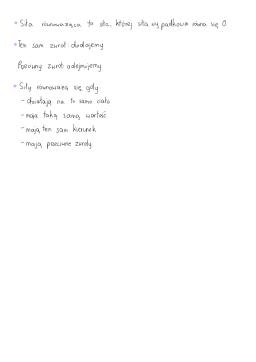 • Siła równoważąca to siła, której siła wypadkowa równa się 0.
• Ten sam zwrot: dodajemy
Przeciwny zwrot: odejmujemy
• Siły równoważą się gdy:
- działają na to samo ciało
- mają taką samą wartość
- mają ten sam kierunek
- mają przeciwne zwroty